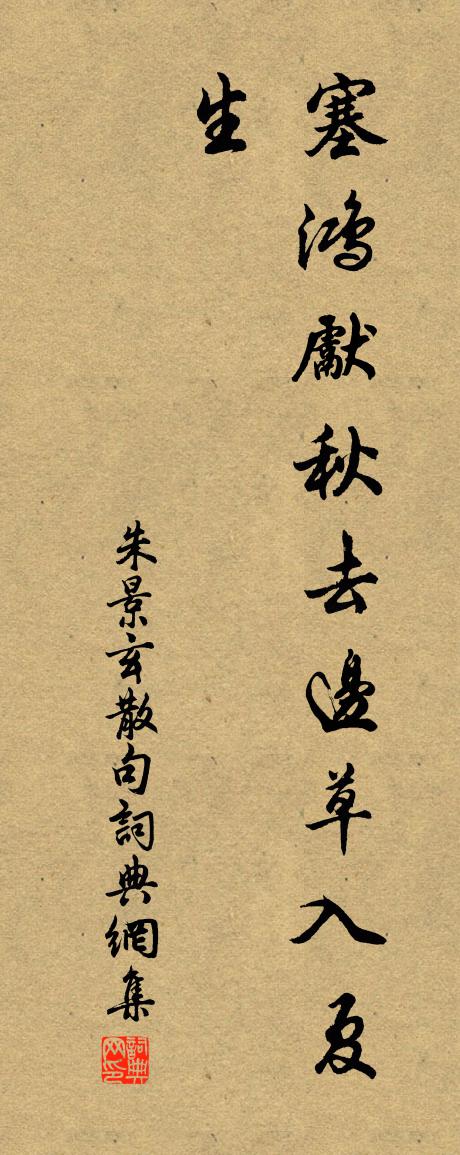 塞鴻獻秋去邊草入夏
生
朱景玄散句詞典網集
詞典网印